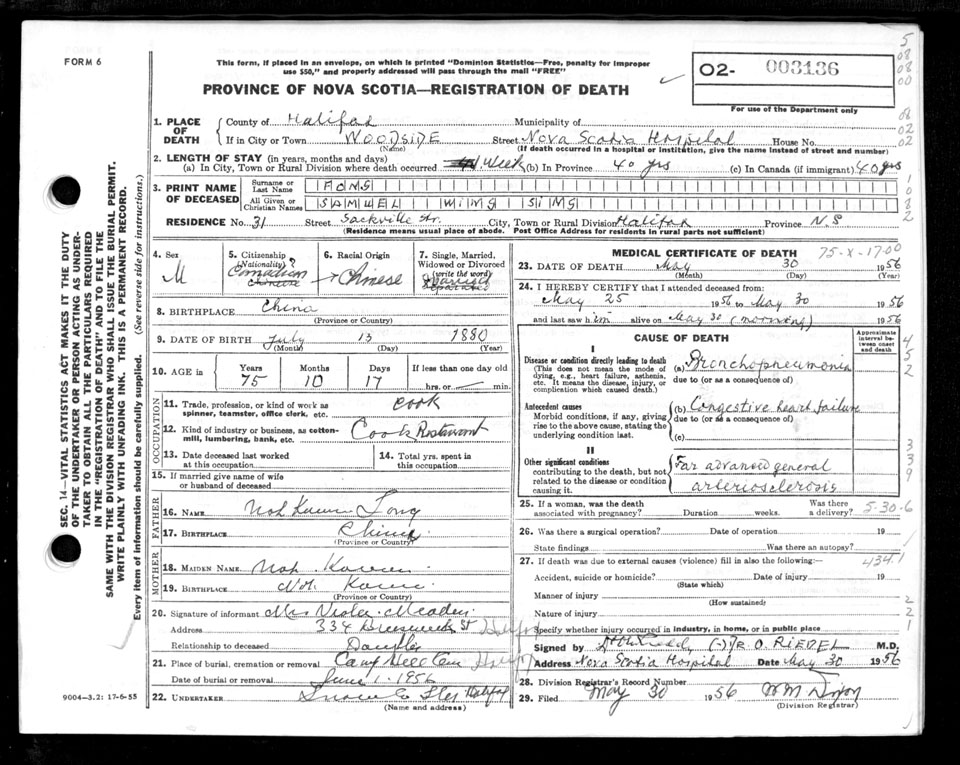 FORM 6
This form, if placed in an envelope, on which is printed "Dominion Statistics—Free, penalty for improper
use $50," and properly addressed will pass through the mail "FREE"
PROVINCE OF NOVA SCOTIA—REGISTRATION OF DEATH
02- 003136
For use of the Department only
1. PLACE OF DEATH
County of Halifax Municipality of
If in City or Town WOODSIDE Street Nova Scotia Hospital House No.
(Name) (If death occurred in a hospital or institution, give the name instead of street and number)
2. LENGTH OF STAY (in years, months and days)
(a) In City, Town or Rural Division where death occurred 1 Week (b) In Province 40 yrs (c) In Canada (if immigrant) 40 yrs
3. PRINT NAME OF DECEASED
Surname or Last Name FONG
All Given or Christian Names SAMUEL WING SING
RESIDENCE No. 31 Street Sackville Str. City, Town or Rural Division Halifax Province N.S
(Residence means usual place of abode. Post Office Address for residents in rural parts not sufficient)
4. Sex
M
5. Citizenship (Nationality)
Canadian
Chinese
6. Racial Origin
Chinese
7. Single, Married, Widowed or Divorced (write the word)
8. BIRTHPLACE China
(Province or Country)
9. DATE OF BIRTH July 13 1880
(Month) (Day) (Year)
10. AGE in
Years Months Days If less than one day
75 10 17 hrs. or min.
OCCUPATION
11. Trade, profession, or kind of work as spinner, teamster, office clerk, etc. Cook
12. Kind of industry or business, as cotton-mill, lumbering, bank, etc. Cook Restaurant
13. Date deceased last worked at this occupation
14. Total yrs. spent in this occupation
15. If married give name of wife or husband of deceased
FATHER
16. NAME Not Known Fong
17. BIRTHPLACE China
(Province or Country)
MOTHER
18. MAIDEN NAME Not Known
19. BIRTHPLACE Not Known
(Province or Country)
20. Signature of informant Mrs Viola Meader
Address 334 Brunswick St Halifax
Relationship to deceased Daughter
21. Place of burial, cremation or removal Camp Hill Cem Halifax
Date of burial or removal June 1 - 1956
22. UNDERTAKER Snow & Halifax
(Name and address)
9004—3.2: 17-6-55
MEDICAL CERTIFICATE OF DEATH 75-X-17-00
23. DATE OF DEATH May 30 1956
(Month) (Day) (Year)
24. I HEREBY CERTIFY that I attended deceased from:
May 25 1956 to May 30 1956
and last saw him alive on May 30 (morning) 1956
CAUSE OF DEATH
Approximate interval between onset and death
I
Disease or condition directly leading to death
(This does not mean the mode of dying, e.g., heart failure, asthenia, etc. It means the disease, injury, or complication which caused death.)
(a) Bronchopneumonia
due to (or as a consequence of)
Antecedent causes
Morbid conditions, if any, giving rise to the above cause, stating the underlying condition last.
(b) Congestive heart failure
due to (or as a consequence of)
(c)
II
Other significant conditions
contributing to the death, but not related to the disease or condition causing it.
Far advanced general
arteriosclerosis
25. If a woman, was the death associated with pregnancy? Duration weeks. Was there a delivery? 5-30-6
26. Was there a surgical operation? Date of operation 19
State findings Was there an autopsy?
27. If death was due to external causes (violence) fill in also the following:— 434.1
Accident, suicide or homicide? Date of injury 19
(State which)
Manner of injury
(How sustained)
Nature of injury
Specify whether injury occurred in industry, in home, or in public place
Signed by DR O. RIEDEL M.D.
Address Nova Scotia Hospital Date May 30 1956
28. Division Registrar's Record Number
29. Filed May 30 1956 WM Dixon
(Division Registrar)
SEC. 14—VITAL STATISTICS ACT MAKES IT THE DUTY
OF THE UNDERTAKER OR PERSON ACTING AS UNDER-
TAKER TO OBTAIN ALL THE PARTICULARS REQUIRED
IN THE "REGISTRATION OF DEATH" AND TO FILE THE
SAME WITH THE DIVISION REGISTRAR WHO SHALL ISSUE THE BURIAL PERMIT.
WRITE PLAINLY WITH UNFADING INK. THIS IS A PERMANENT RECORD.
Every item of information should be carefully supplied. (See reverse side for instructions.)